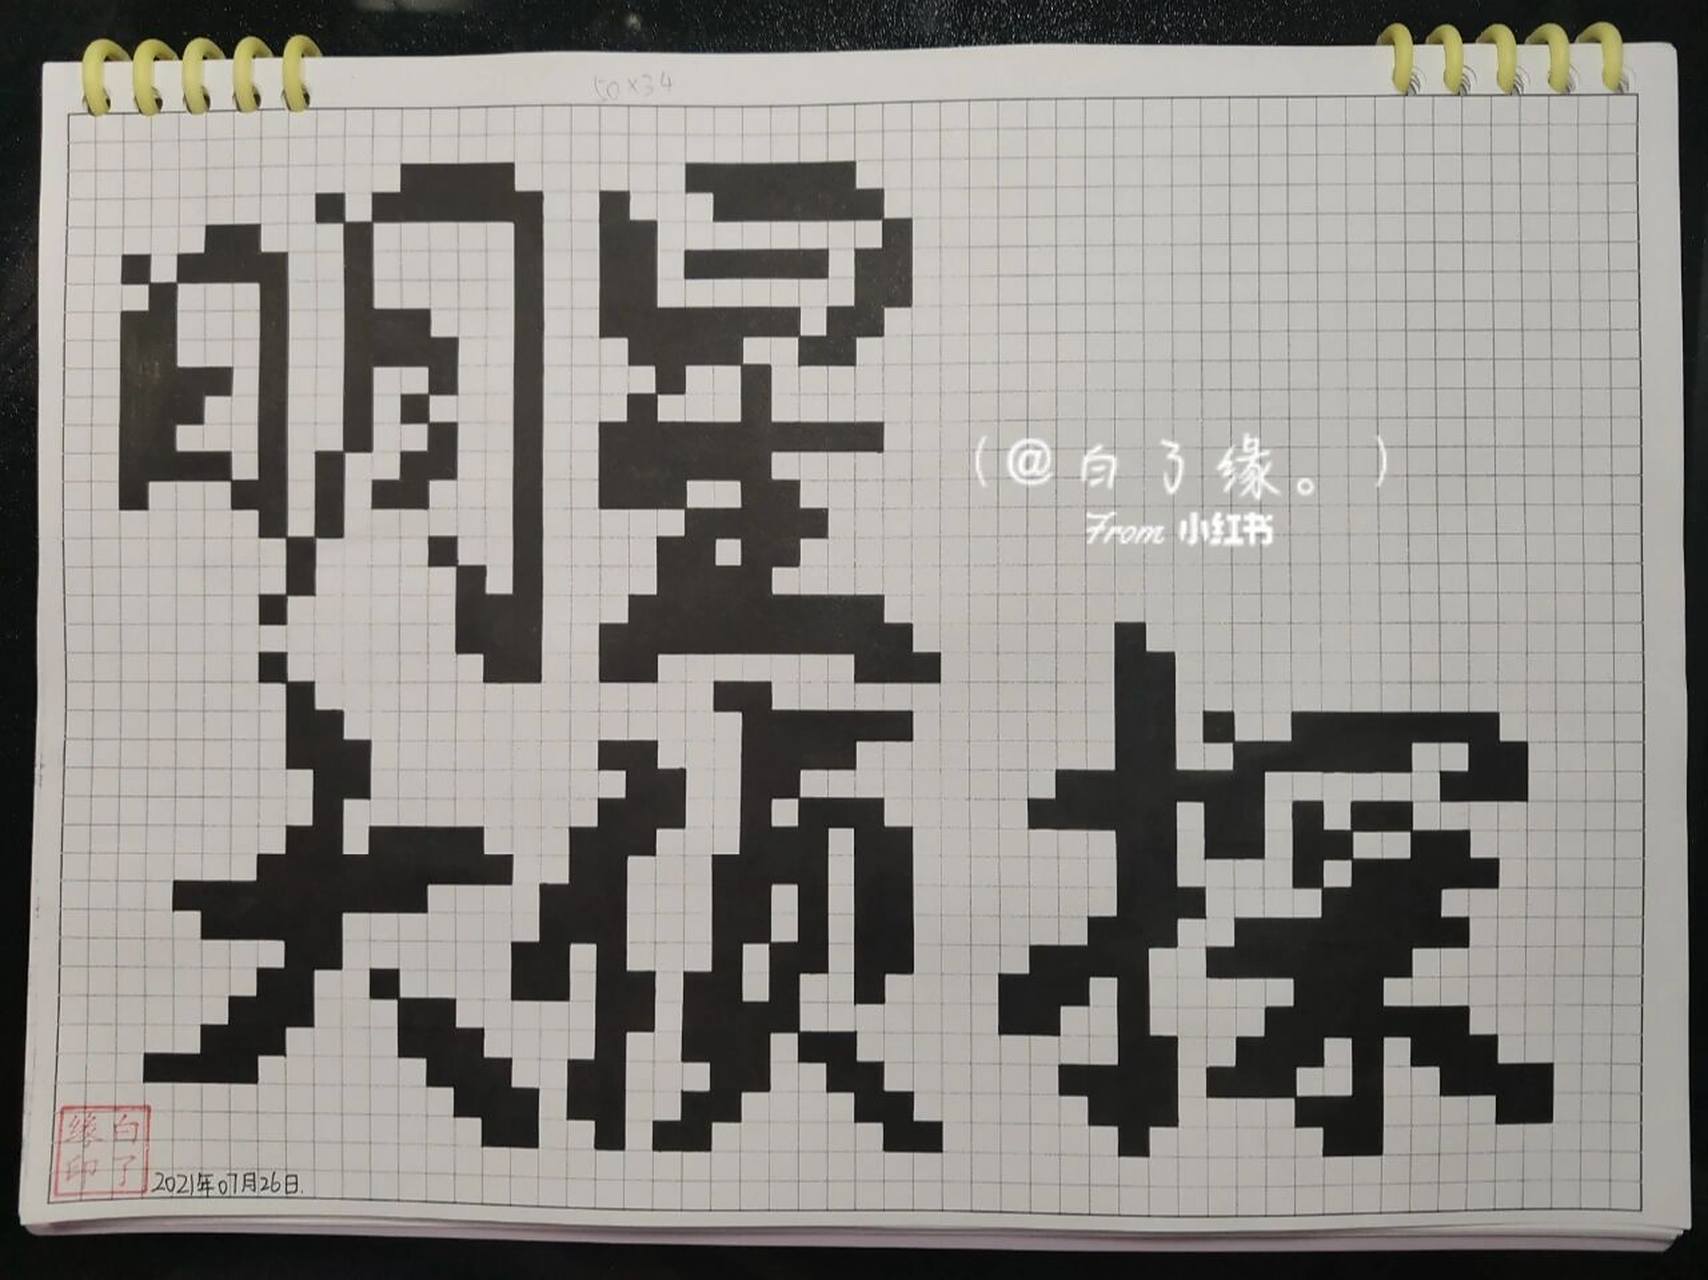 50×34
明星
大侦探
(@白了缘。)
From 小红书
白了
缘印
2021年07月26日.